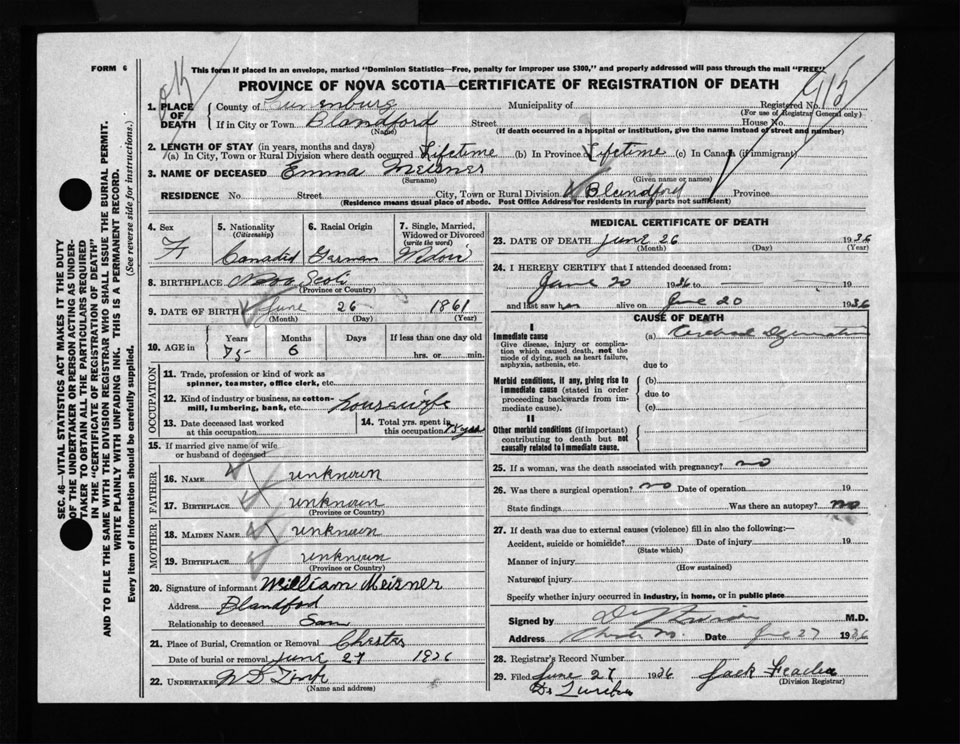 FORM 6
This form if placed in an envelope, marked "Dominion Statistics—Free, penalty for improper use $300," and properly addressed will pass through the mail "FREE"
PROVINCE OF NOVA SCOTIA—CERTIFICATE OF REGISTRATION OF DEATH
1. PLACE OF DEATH
County of Lunenburg Municipality of Registered No.
(For use of Registrar General only)
If in City or Town Blandford Street House No.
(Name) (If death occurred in a hospital or institution, give the name instead of street and number)
2. LENGTH OF STAY (in years, months and days)
(a) In City, Town or Rural Division where death occurred Lifetime (b) In Province Lifetime (c) In Canada (if immigrant)
3. NAME OF DECEASED Emma Meisner
(Surname) (Given name or names)
RESIDENCE No. Street City, Town or Rural Division Blandford Province
(Residence means usual place of abode. Post Office Address for residents in rural parts not sufficient)
4. Sex 5. Nationality (Citizenship) 6. Racial Origin 7. Single, Married, Widowed or Divorced (write the word)
F Canadid German Widow
8. BIRTHPLACE Nova Scoti
(Province or Country)
9. DATE OF BIRTH June 26 1861
(Month) (Day) (Year)
10. AGE in Years Months Days If less than one day old
75 6 hrs. or min.
OCCUPATION
11. Trade, profession or kind of work as spinner, teamster, office clerk, etc.
12. Kind of industry or business, as cotton-mill, lumbering, bank, etc. housewife
13. Date deceased last worked at this occupation 14. Total yrs. spent in this occupation
15. If married give name of wife or husband of deceased
FATHER
16. NAME unknown
17. BIRTHPLACE unknown
(Province or Country)
MOTHER
18. MAIDEN NAME unknown
19. BIRTHPLACE unknown
(Province or Country)
20. Signature of informant William Meisner
Address Blandford
Relationship to deceased Son
21. Place of Burial, Cremation or Removal Chester
Date of burial or removal June 27 1936
22. UNDERTAKER
(Name and address)
MEDICAL CERTIFICATE OF DEATH
23. DATE OF DEATH June 26 1936
(Month) (Day) (Year)
24. I HEREBY CERTIFY that I attended deceased from:
June 20 1936 to
and last saw her alive on June 20 1936
CAUSE OF DEATH
I
Immediate cause
Give disease, injury or complication which caused death, not the mode of dying, such as heart failure, asphyxia, asthenia, etc.
(a) Cerebral
due to
Morbid conditions, if any, giving rise to immediate cause (stated in order proceeding backwards from immediate cause).
(b)
due to
(c)
II
Other morbid conditions (if important) contributing to death but not causally related to immediate cause.
25. If a woman, was the death associated with pregnancy? no
26. Was there a surgical operation? no Date of operation 19
State findings Was there an autopsy? no
27. If death was due to external causes (violence) fill in also the following:—
Accident, suicide or homicide? Date of injury 19
(State which)
Manner of injury
(How sustained)
Nature of injury
Specify whether injury occurred in industry, in home, or in public place
Signed by M.D.
Address Date June 27 1936
28. Registrar's Record Number
29. Filed June 27 1936 Jack
(Division Registrar)
SEC. 46—VITAL STATISTICS ACT MAKES IT THE DUTY
OF THE UNDERTAKER OR PERSON ACTING AS UNDER-
TAKER TO OBTAIN ALL THE PARTICULARS REQUIRED
IN THE "CERTIFICATE OF REGISTRATION OF DEATH"
AND TO FILE THE SAME WITH THE DIVISION REGISTRAR WHO SHALL ISSUE THE BURIAL PERMIT.
WRITE PLAINLY WITH UNFADING INK. THIS IS A PERMANENT RECORD.
Every item of information should be carefully supplied. (See reverse side for instructions.)